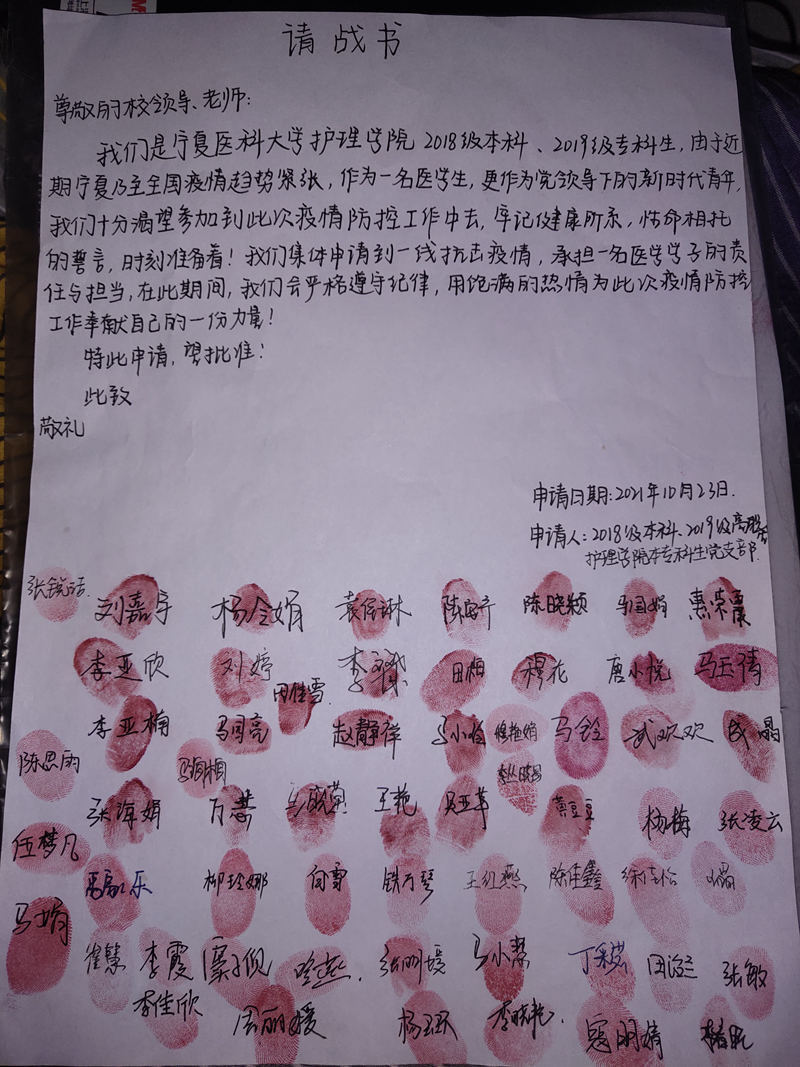 请战书
尊敬的校领导、老师:
我们是宁夏医科大学护理学院2018级本科、2019级专科生,由于近
期宁夏乃至全国疫情趋势紧张,作为一名医学生,更作为党领导下的新时代青年,
我们十分渴望参加到此次疫情防控工作中去,牢记健康所系,性命相托
的誓言,时刻准备着!我们集体申请到一线抗击疫情,承担一名医学学子的责
任与担当,在此期间,我们会严格遵守纪律,用饱满的热情为此次疫情防控
工作奉献自己的一份力量!
特此申请,望批准!
此致
敬礼
申请日期:2021年10月23日.
申请人:2018级本科、2019级高职
护理学院本专科生党支部.
张锐洁 刘嘉宇 杨金娟 陈晓颖 马国娟
李亚欣 刘婷 田佳雪 田相 穆花 唐小悦 马玉倩
李亚楠 马国亮 赵静祥 马铃 武欢欢
陈思雨
张海娟 万慧 王艳 黄豆豆 杨梅 张凌云
伍梦凡
柳玲娜 何雪 铁万琴 王红燕 陈佳鑫 徐佳怡
马娟
崔慧 李霞 张明媛 马小慧 张敏
李佳欣 周丽媛 李晓艳 寇明婧